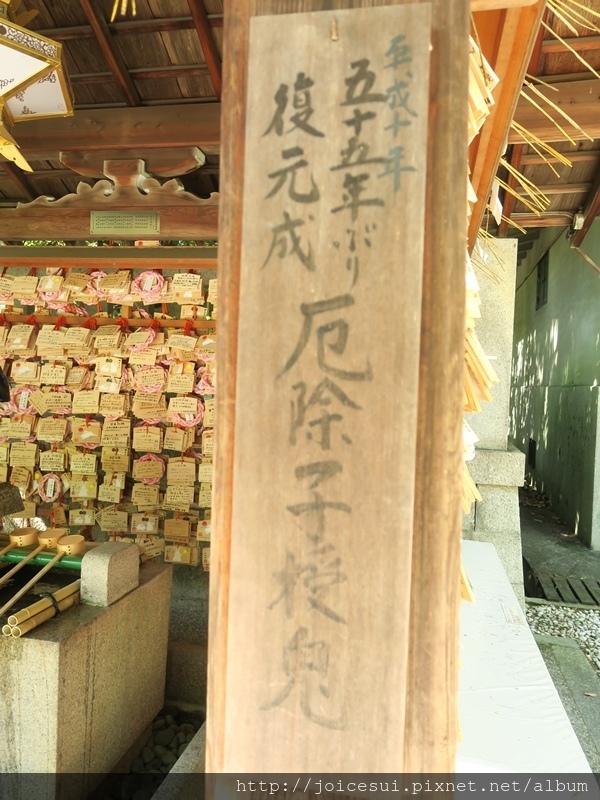 平成十年
五十五年ぶり
復元成
厄除子授鬼
http://joicesui.pixnet.net/album